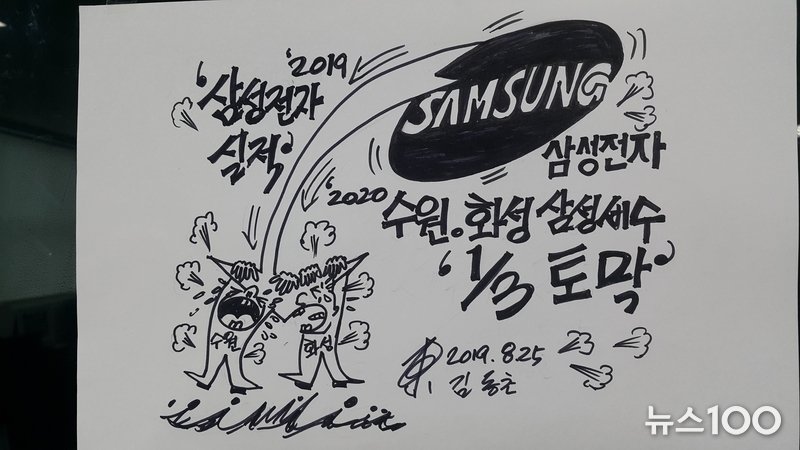 '2019
'삼성전자
실적'
SAMSUNG
삼성전자
'2020
수원.화성 삼성세수
'1/3 토막'
수원
화성
2019.8.25
김동초
뉴스100